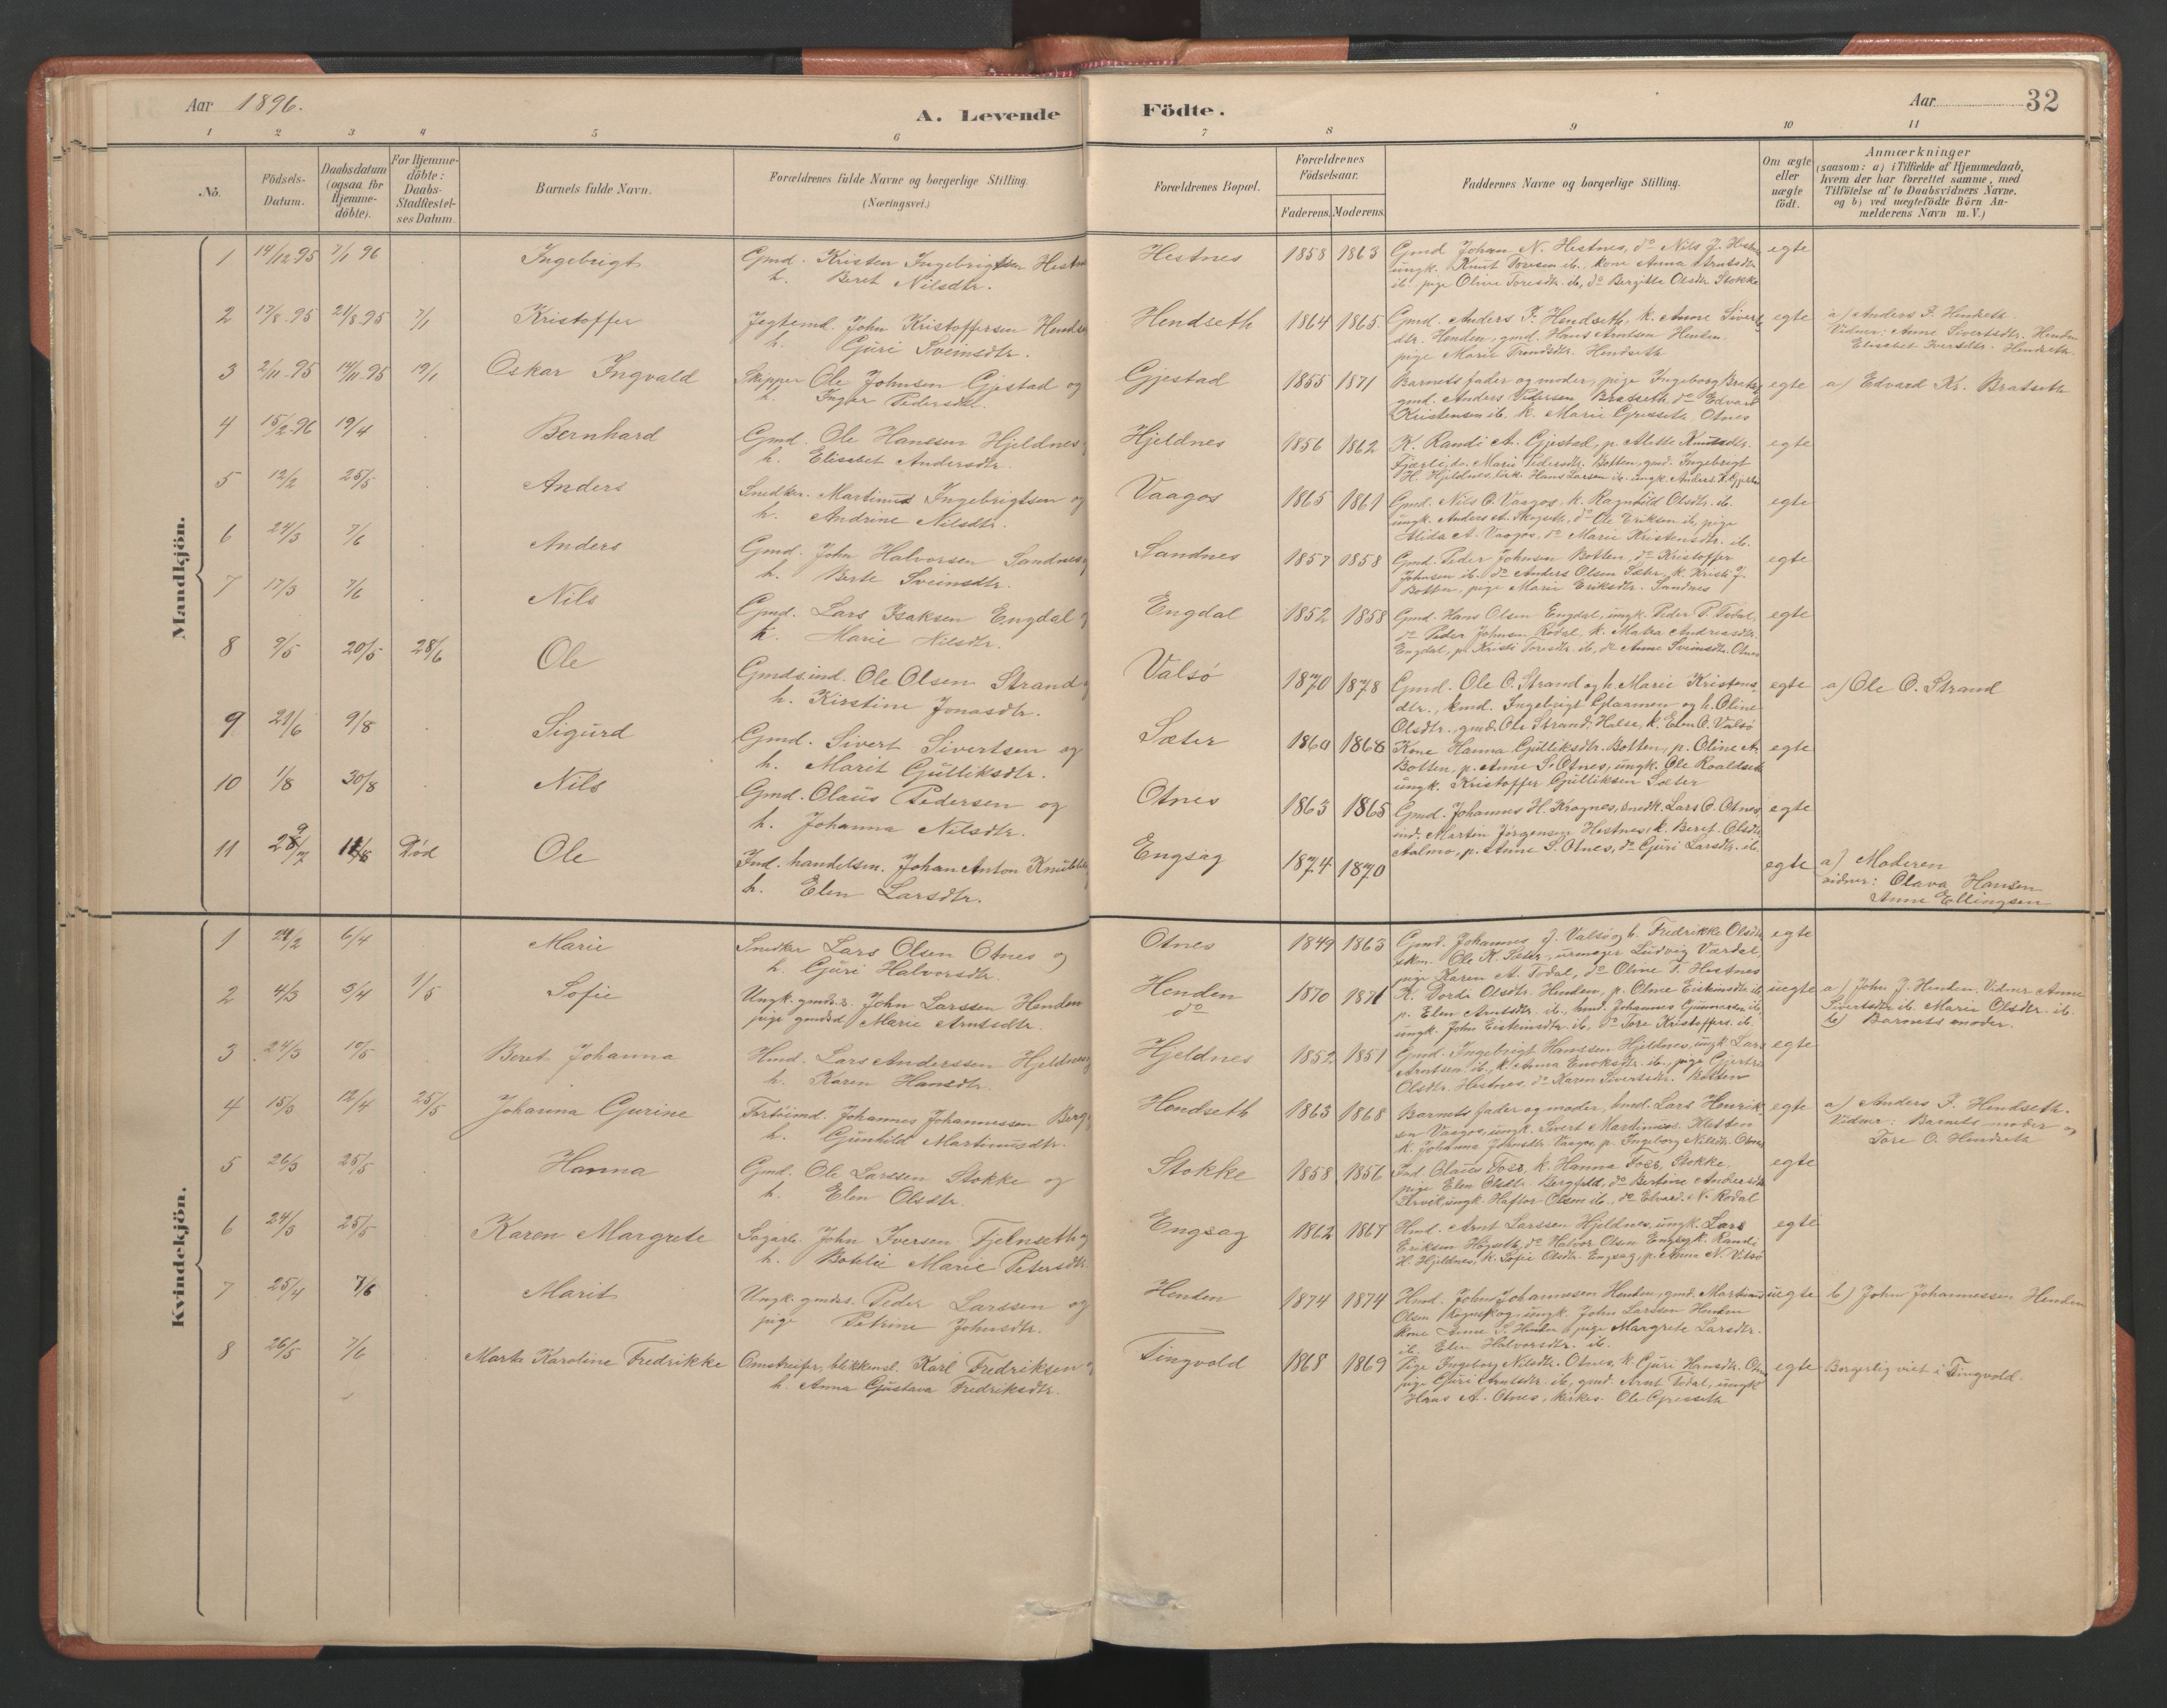 Aar 1896.
A. Levende Födte.
Aar 32
1 2 3 4 5 6 7 8 9 10 11
No.
Födsels-Datum.
Daabsdatum (ogsaa for Hjemme-döbte).
For Hjemme-döbte: Daabs-Stadfestel-ses Datum.
Barnets fulde Navn.
Forældrenes fulde Navne og borgerlige Stilling. (Næringsvei.)
Forældrenes Bopæl.
Forældrenes Födselsaar.
Faderens. Moderens.
Faddernes Navne og borgerlige Stilling.
Om ægte eller uægte födt.
Anmærkninger
(saasom: a) i Tilfælde af Hjemmedaab,
hvem der har forrettet samme, med
Tilföielse af to Daabsvidners Navne.
og b) ved uægtefödte Börn An-
melderens Navn m. V.)
Mandkjön.
1 14/12 95 7/1 96 Ingebrigt Gmd. Kristen Ingebrigtsen Hestnes Hestnes 1858 1863 Gmd Johan N. Hestnes, do Nils J. Hestnes egte
h. Beret Nilsdtr. ungk. Knut Toresen ib. kone Anna Arntsdtr
ib. pige Oline Toresdtr. ib, do Bergitte Olsdtr Stokke
2 17/8 95 21/8 95 7/1 Kristoffer Jegtemd. John Kristoffersen Hendseth Hendseth 1864 1865 Gmd. Anders F. Hendseth, k. Anne Siverts- egte a) Anders F. Hendseth.
h. Guri Sveinsdtr. dtr. Henden, gmd. Hans Arntsen Henden Vidner: Anne Sivertsdtr. Henden
pige Marie Trondsdtr. Hendseth Elisabet Iversdtr. Hendseth
3 2/11 95 14/11 95 19/1 Oskar Ingvald Skipper Ole Johnsen Gjestad og Gjestad 1855 1871 Barnets fader og moder, pige Ingeborg Bratset egte a) Edvard Kr. Bratseth
h. Inger Pedersdtr. gmd. Anders Pedersen Bratseth do Edvard
Kristensen ib. k. Marie Gresseth Otnes
4 15/2 96 19/4 Bernhard Gmd. Ole Hanssen Hjeldnes Hjeldnes 1856 1862 K. Randi A. Gjestad, p. Alette Knutsdtr. egte
h. Elisabet Andersdtr. Fjærli, do. Marie Pedersdtr. Botten, gmd. Ingebrigt
H. Hjeldnes, Hans Larsen ib. ungk. Anders
5 12/2 25/5 Anders Snedker. Martinus Ingebrigtsen og Vaagos 1865 1861 Gmd. Nils O. Vaagos, k. Ragnhild Olsdtr. ib. egte
h. Andrine Nilsdtr. ungk. Anders A. Skogseth, do Ole Eriksen ib, pige
Alida A. Vaagos, do Marie Kristensdtr. ib.
6 24/3 7/6 Anders Gmd. John Halvorsen Sandnes Sandnes 1857 1858 Gmd. Peder Johnsen Botten, do Kristoffer egte
h. Berte Sveinsdtr. Johnsen ib. do Anders Olsen Sæter, k. Kristi J.
Botten, pige Marie Eriksdtr. Sandnes
7 17/3 7/6 Nils Gmd. Lars Isaksen Engdal Engdal 1852 1858 Gmd. Hans Olsen Engdal, ungk. Peder P. Todal, egte
h. Marie Nilsdtr. do Peder Johnsen Rodal, k. Malea Andreasdtr.
Engdal, p. Kristi Toresdtr. ib, do Anne Sveinsdtr. Otnes
8 9/5 20/5 28/6 Ole Gmds.ind. Ole Olsen Strand Valsö 1870 1878 Gmd. Ole O. Strand og h. Marie Kristens- egte a) Ole O. Strand
h. Kirstine Jonasdtr. dtr., kmd. Ingebrigt Glaamen og h. Oline
Olsdtr, gmd. Ole Strand, Halse, k. Elen O. Valsö
9 21/6 9/8 Sigurd Gmd. Sivert Sivertsen og Sæter 1860 1868 Kone Hanna Gulliksdtr. Botten, p. Oline A. egte
h. Marit Gulliksdtr. Botten, p. Anne S. Otnes, ungk. Ole Roaldset
ungk. Kristoffer Gulliksen Sæter
10 1/8 30/8 Nils Gmd. Olaus Pedersen og Otnes 1863 1865 Gmd. Johannes H. Krognes, snedk. Lars O. Otnes, egte
h. Johanna Nilsdtr. ind. Martin Jörgensen Hestnes, k. Beret Olsdtr
Aalmo, p. Anne S. Otnes, do Guri Larsdtr. ib.
11 29/7 11/8 Död Ole Ind. handelsm. Johan Anton Engsag 1874 1870 egte a) Moderen
h. Elen Larsdtr. vidner: Olava Hansen
Anne Ellingsen
Kvindekjön.
1 24/2 6/4 Marie Snedker Lars Olsen Otnes og Otnes 1849 1863 Gmd. Johannes J. Valsö og h. Fredrikke Olsdtr egte
h. Guri Halvorsdtr. Ole K. Sæter, urmager Ludvig Værdal,
pige Karen A. Todal, do Oline T. Hestnes
2 4/3 5/4 1/5 Sofie Ungk. gmds.s. John Larssen Henden Henden 1870 1871 K. Dordi Olsdtr. Henden, p. Oline Eistensdtr ib uegte a) John J. Henden. Vidner Anne
pige gmdsd. Marie Arntsdtr. do p. Elen Arntsdtr. ib, hmd. Johannes Gunnersen ib, Sivertsdtr ib. Marie Olsdtr. ib.
ungk. John Eistensdtr ib, do Tore Kristoffers. ib. b) Barnets moder.
3 24/3 10/5 Beret Johanna Hmd. Lars Anderssen Hjeldnes Hjeldnes 1852 1851 Gmd. Ingebrigt Hanssen Hjeldnes, ungk Lars egte
h. Karen Hansdtr. Arntsen ib, k. Anna Enoksdtr. ib, pige Gjertru
Olsdtr. Hestnes, do Karen Sivertsdtr. Botten
4 15/3 12/4 25/5 Johanna Gurine Johannes Johannessen Berg Hendseth 1863 1868 Barnets fader og moder, hmd. Lars Henrik- egte a) Anders F. Hendseth.
h. Gunhild Martinusdtr. sen Vaagos, ungk. Sivert Martinsen Kletten Vidner: Barnets moder og
k. Johanna Johnsdtr. Vaagos, p. Ingeborg Nilsdtr. Otnes Tore O. Hendseth
5 26/3 25/5 Hanna Gmd. Ole Larssen Stokke og Stokke 1858 1856 Ind. Olaus Foss, k. Hanna Foss, Stokke. egte
h. Elen Olsdtr. pige Elen Olsdtr. do Bertine Andersdtr
Arvik, ungk. Haftor Olsen ib., do Edvard N. Rodal
6 24/3 25/5 Karen Margrete Sagarb. John Iversen Fjelnseth og Engsag 1862 1867 Hmd. Arnt Larssen Hjeldnes, ungk. Lars egte
h. Botelie Marie Petersdtr. Eriksen Högseth, do Halvor Olsen Engsag, k. Randi
H. Hjeldnes, k. Sofie Olsdtr. Engsag, p. Anna N. Valsö
7 25/4 7/6 Marit Ungk. gmds. Peder Larssen og Henden 1874 1874 Hmd. John Johannesen Henden, gmd. Martinus uegte b) John Johannessen Henden
pige Petrine Johnsdtr. Olsen Rognskog, ungk. John Larsson Henden
Kone Anne S. Henden, pige Margrete Larsdtr.
ib. Elen Halvorsdtr. ib.
8 26/5 7/6 Marta Karoline Fredrikke Omstreifer, blikkensl. Karl Fredriksen Tingvold 1868 1869 Pige Ingeborg Nilsdtr. Otnes, k. Guri Hansdtr. Otnes egte Borgerlig viet i Tingvold.
h. Anna Gustava Fredriksdtr. pige Guri Arntsdtr. ib, gmd. Arnt Todal, ungk
Hans A. Otnes, kirkes. Ole Gresseth